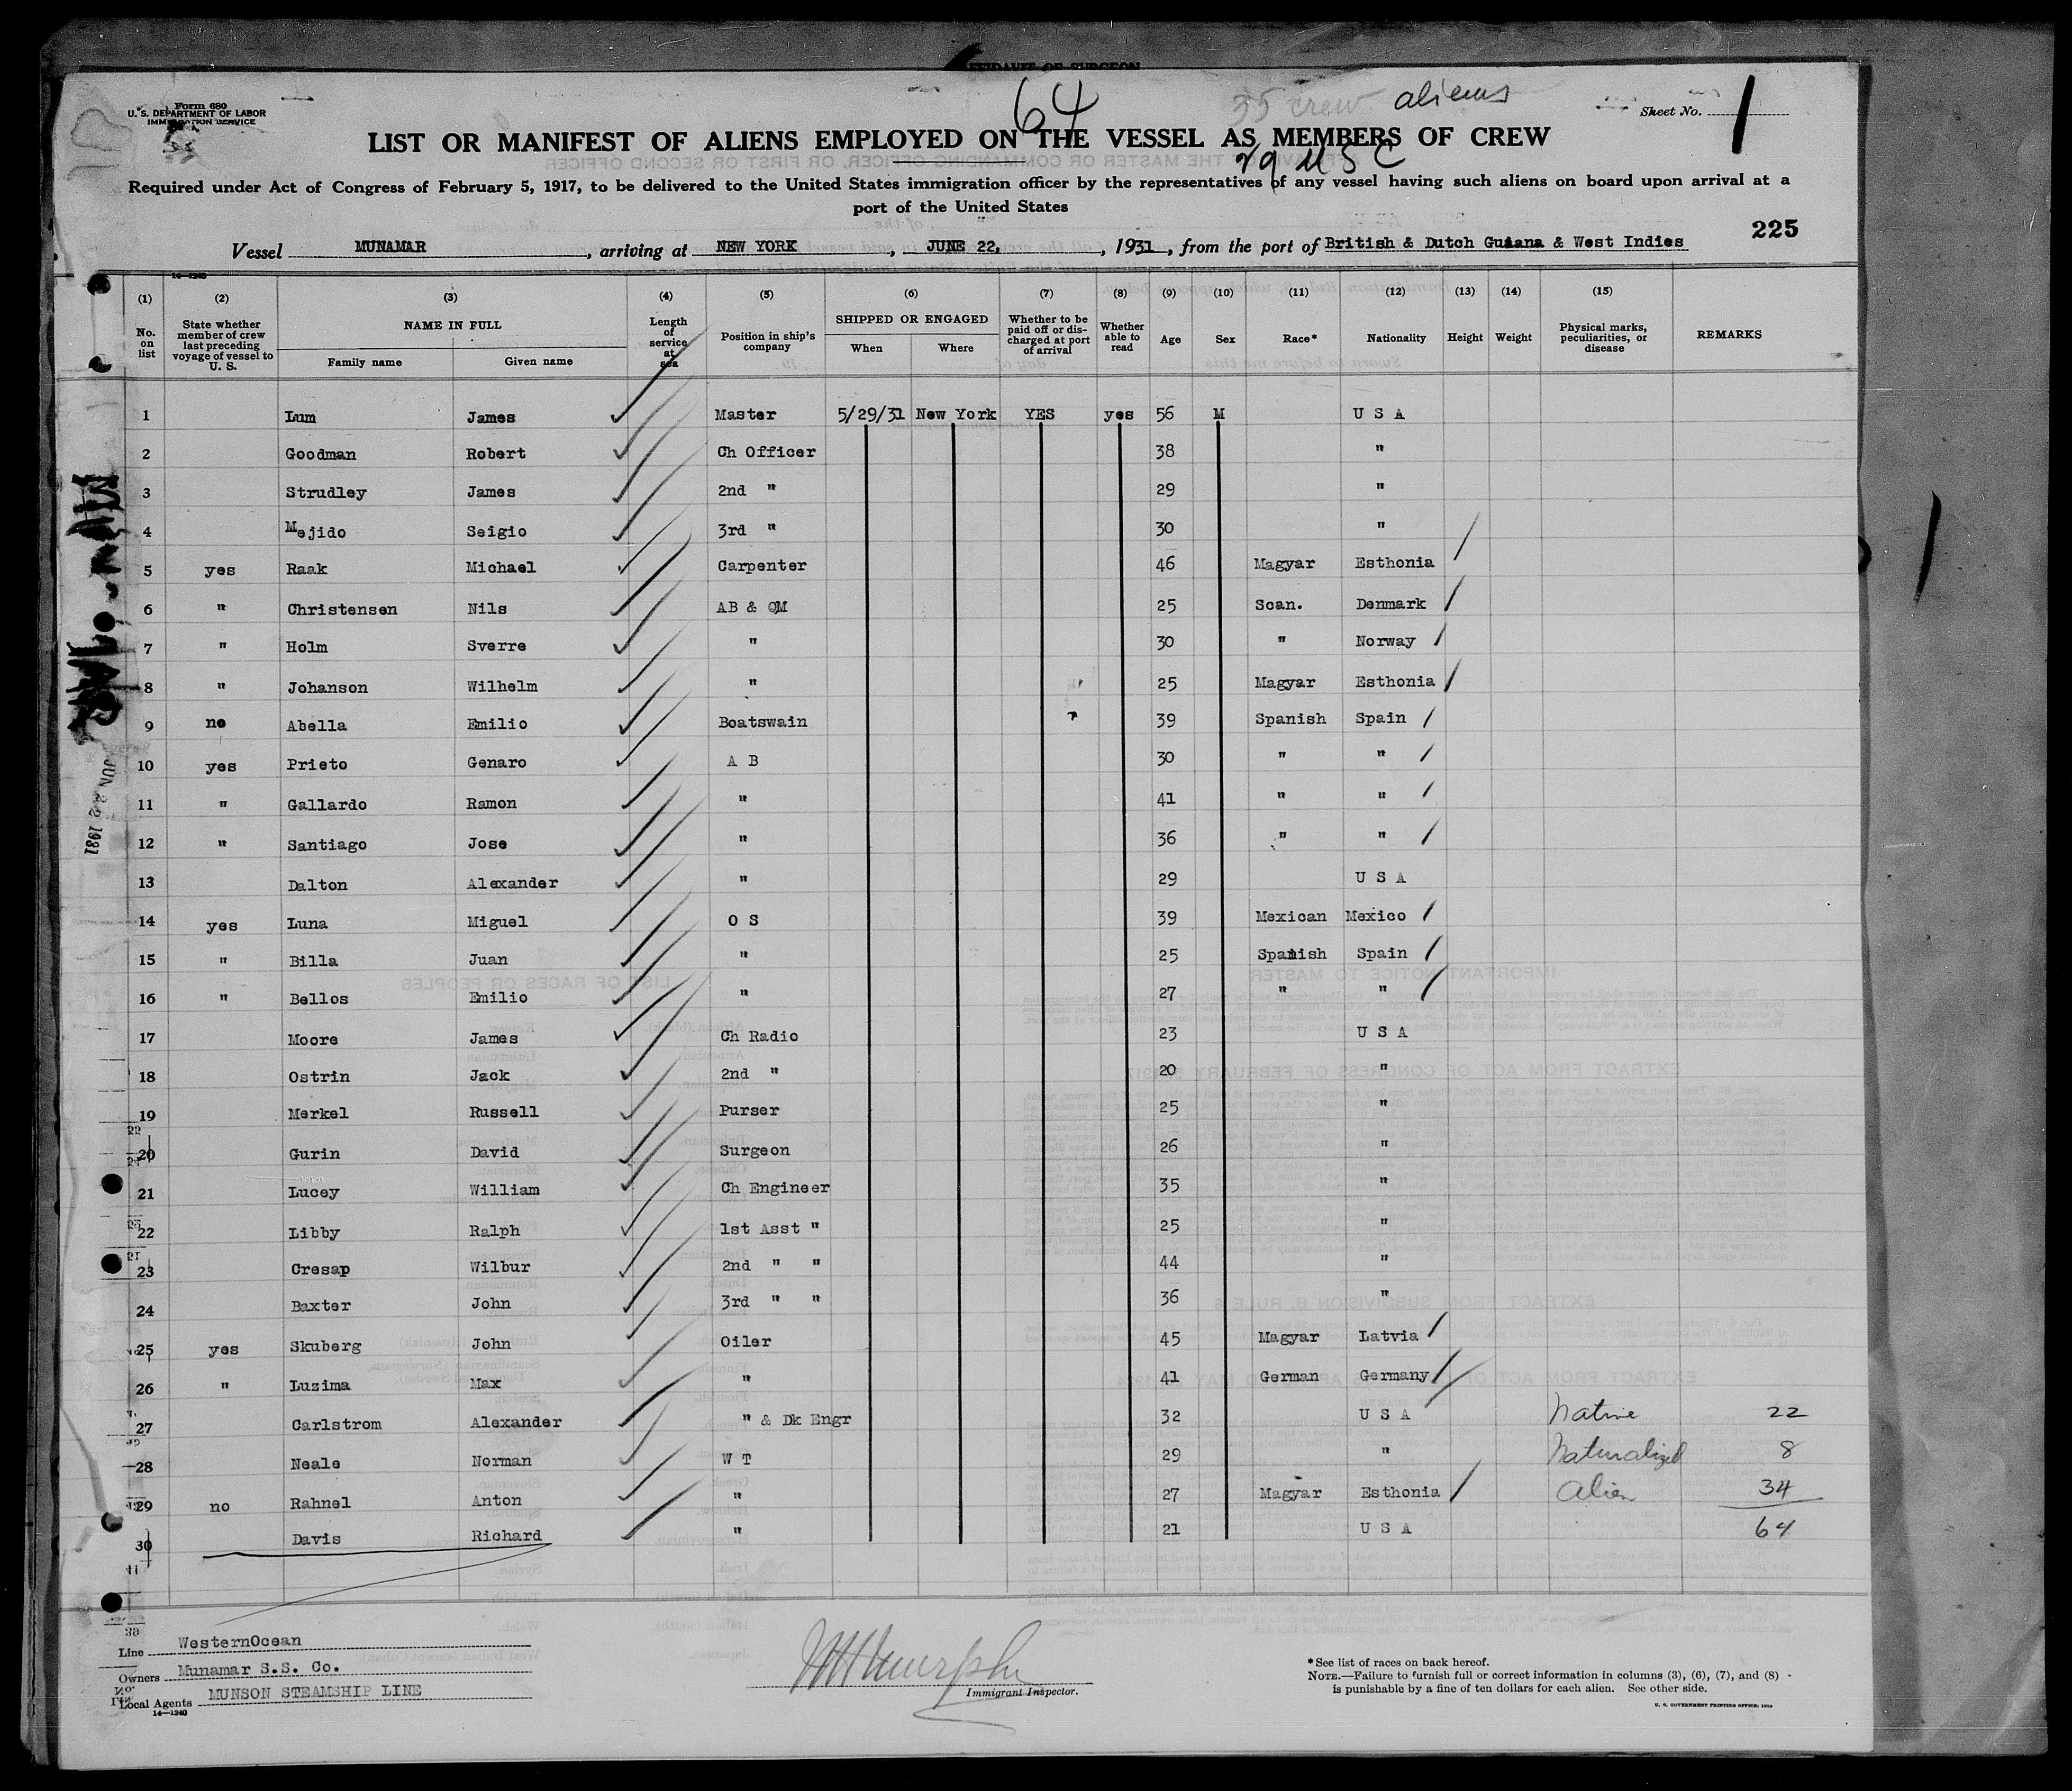 AFFIDAVIT OF SURGEON
Form 680
U. S. DEPARTMENT OF LABOR
IMMIGRATION SERVICE
64
35 crew aliens
Sheet No. 1
LIST OR MANIFEST OF ALIENS EMPLOYED ON THE VESSEL AS MEMBERS OF CREW
29 USC
Required under Act of Congress of February 5, 1917, to be delivered to the United States immigration officer by the representatives of any vessel having such aliens on board upon arrival at a
port of the United States
225
Vessel MUNAMAR, arriving at NEW YORK, JUNE 22, 1931, from the port of British & Dutch Guiana & West Indies
14-1240
(1) (2) (3) (4) (5) (6) (7) (8) (9) (10) (11) (12) (13) (14) (15)
No. on list
State whether member of crew last preceding voyage of vessel to U. S.
NAME IN FULL
Family name
Given name
Length of service at sea
Position in ship's company
SHIPPED OR ENGAGED
When
Where
Whether to be paid off or discharged at port of arrival
Whether able to read
Age
Sex
Race*
Nationality
Height
Weight
Physical marks, peculiarities, or disease
REMARKS
1 Lum James Master 5/29/31 New York YES yes 56 M U S A
2 Goodman Robert Ch Officer 38 "
3 Strudley James 2nd " 29 "
4 Mejido Seigio 3rd " 30 "
5 yes Raak Michael Carpenter 46 Magyar Esthonia
6 " Christensen Nils AB & QM 25 Scan. Denmark
7 " Holm Sverre " 30 " Norway
8 " Johanson Wilhelm " 25 Magyar Esthonia
9 no Abella Emilio Boatswain 39 Spanish Spain
10 yes Prieto Genaro A B 30 " "
11 " Gallardo Ramon " 41 " "
12 " Santiago Jose " 36 " "
13 Dalton Alexander " 29 U S A
14 yes Luna Miguel O S 39 Mexican Mexico
15 " Billa Juan " 25 Spanish Spain
16 " Bellos Emilio " 27 " "
17 Moore James Ch Radio 23 U S A
18 Ostrin Jack 2nd " 20 "
19 Merkel Russell Purser 25 "
20 Gurin David Surgeon 26 "
21 Lucey William Ch Engineer 35 "
22 Libby Ralph 1st Asst " 25 "
23 Cresap Wilbur 2nd " " 44 "
24 Baxter John 3rd " " 36 "
25 yes Skuberg John Oiler 45 Magyar Latvia
26 " Luzima Max " 41 German Germany
27 Carlstrom Alexander " & Dk Engr 32 U S A Native 22
28 Neale Norman W T 29 " Naturalized 8
29 no Rahnel Anton " 27 Magyar Esthonia Alien 34
30 Davis Richard " 21 U S A 64
JUN 22 1931
Line WesternOcean
Owners Munamar S.S. Co.
Local Agents MUNSON STEAMSHIP LINE
14-1240
Immigrant Inspector.
*See list of races on back hereof.
NOTE.—Failure to furnish full or correct information in columns (3), (6), (7), and (8)
is punishable by a fine of ten dollars for each alien. See other side.
U. S. GOVERNMENT PRINTING OFFICE: